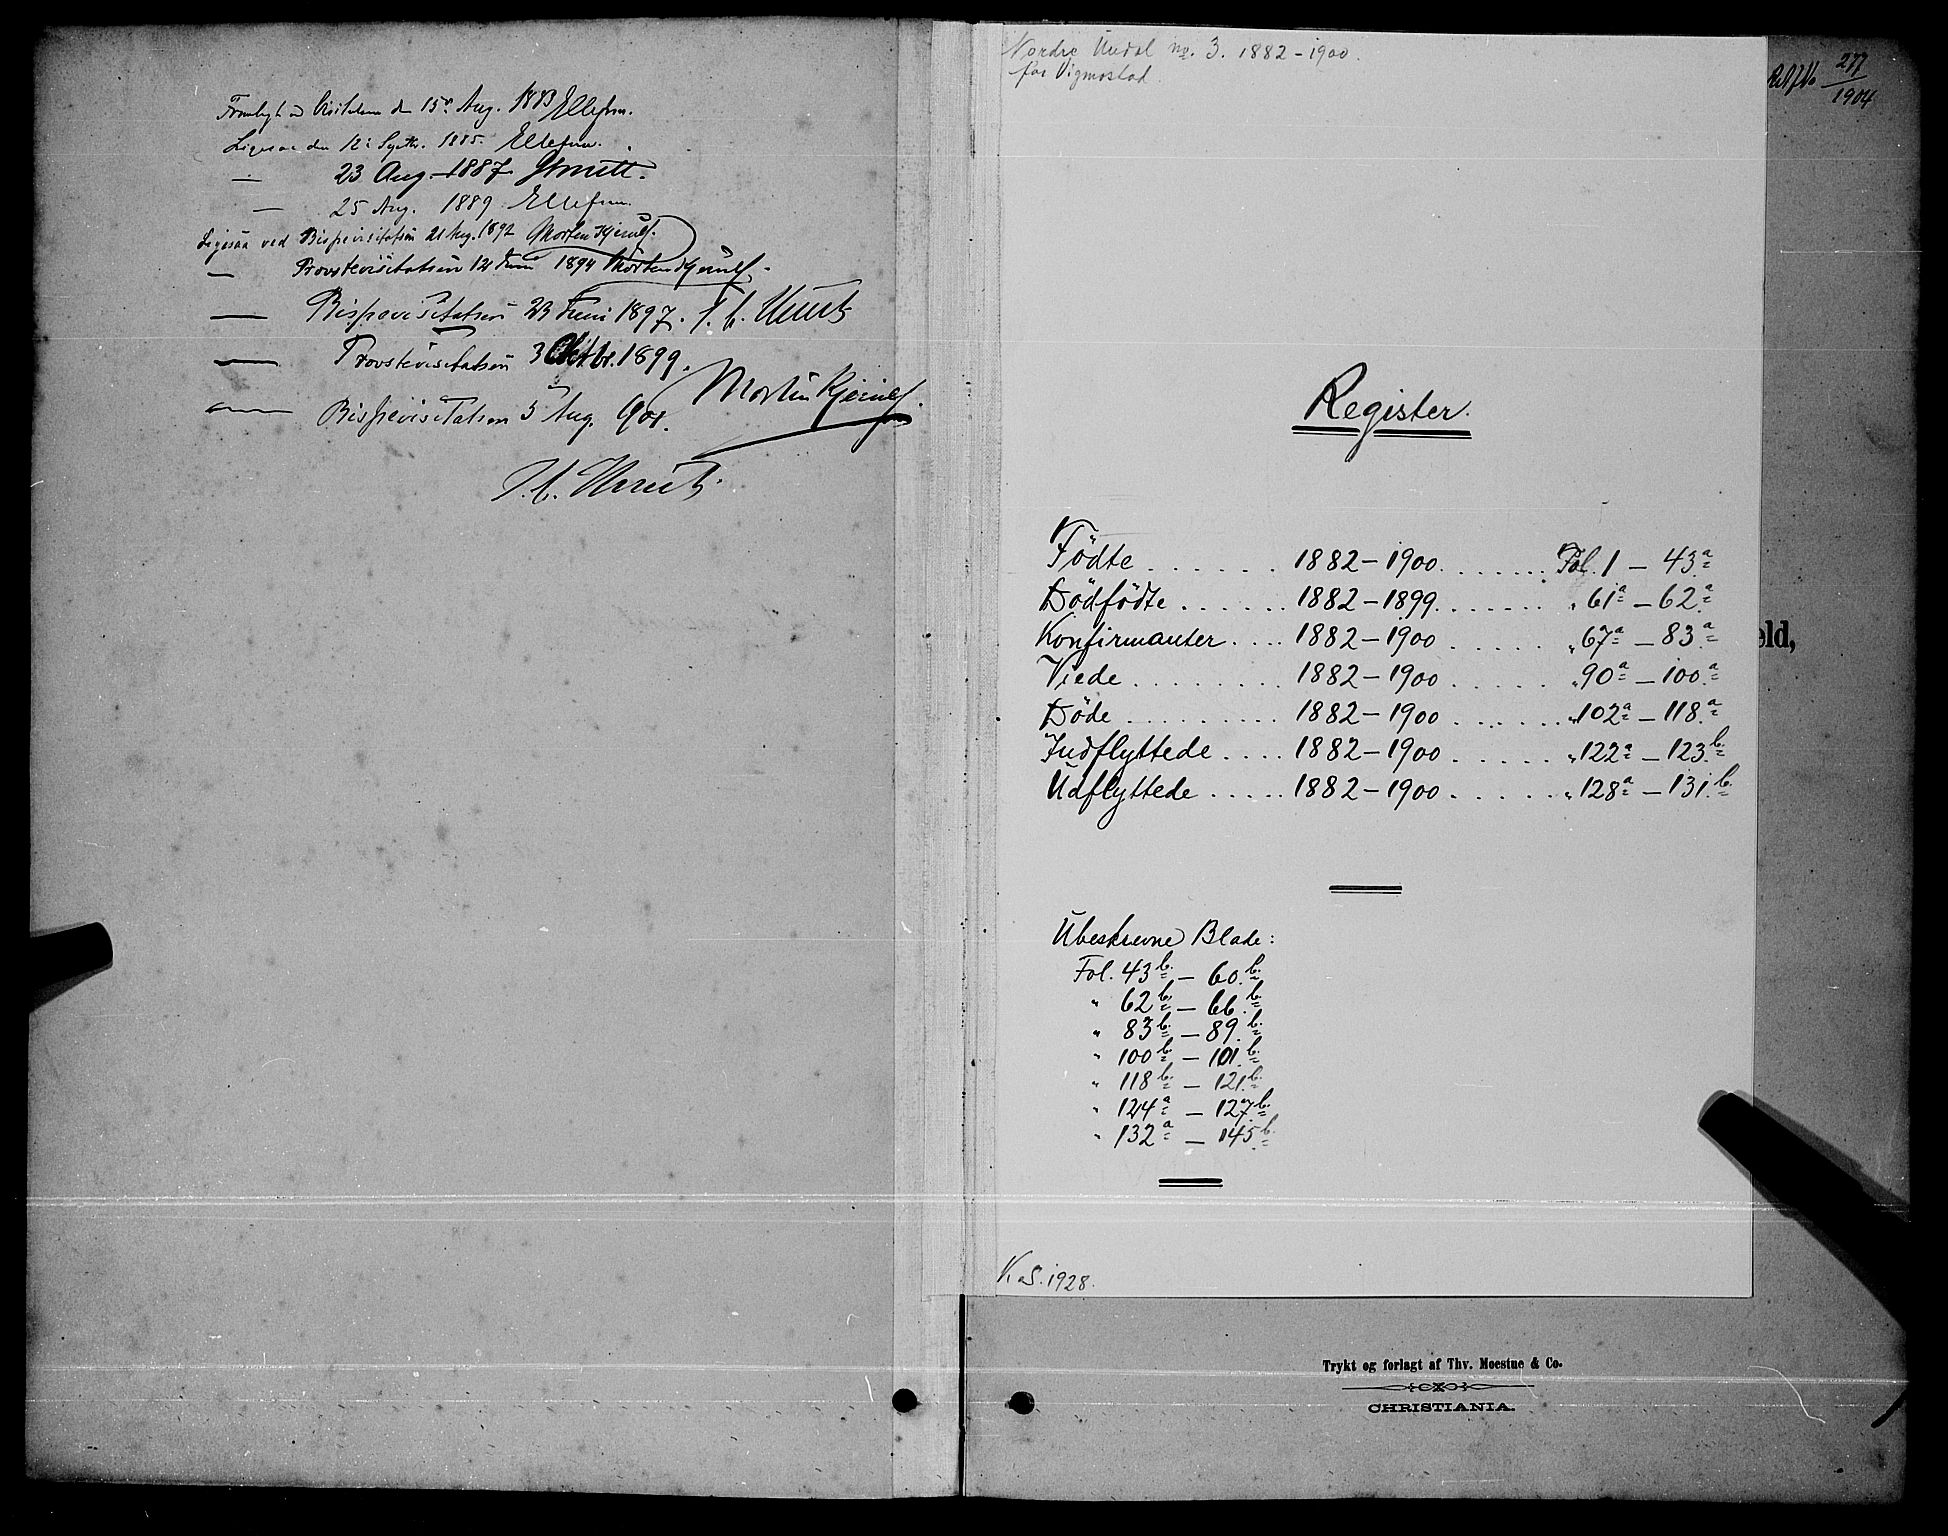 Fremlagt ved Visitatsen den 15de Aug. 1883 Ellefsen.
Ligesaa den 12te Septbr. 1885. Ellefsen.
— 23 Aug. 1887.
— 25 Aug. 1889 Ellefsen.
Ligesaa ved Bispevisitatsen 21 Aug. 1892 Morten Kjerulf.
— Provstevisitatsen 12 Juni 1894 Morten Kjerulf.
— Bispevisitatsen 23 Juni 1897.
— Provstevisitatsen 3 Oktbr. 1899.
Morten Kjerulf.
— Bispevisitatsen 5 Aug. 901.
Nordre Undal nr. 3. 1882-1900.
for Vigmostad
277
1904
Register.
Födte . . . . . . . 1882-1900. . . . . . . Fol. 1 - 43a
Dödfödte . . . . . . 1882-1899. . . . . . . " 61a - 62a
Konfirmanter . . . . 1882-1900 . . . . . . " 67a - 83a
Viede . . . . . . . . . 1882-1900 . . . . . . " 90a - 100a
Döde . . . . . . . . . 1882-1900 . . . . . . " 102a - 118a
Indflyttede . . . . 1882-1900 . . . . . . " 122a - 123b.
Udflyttede . . . . . 1882-1900 . . . . . . " 128a - 131b.
eld,
Ubeskrevne Blade:
Fol. 43b. - 60b.
" 62b. - 66b.
" 83b. - 89b.
" 100b. - 101b.
" 118b. - 121b.
" 124a - 127b.
" 132a - 145b.
K.aS. 1928.
Trykt og forlagt af Thv. Moestue & Co.
CHRISTIANIA.